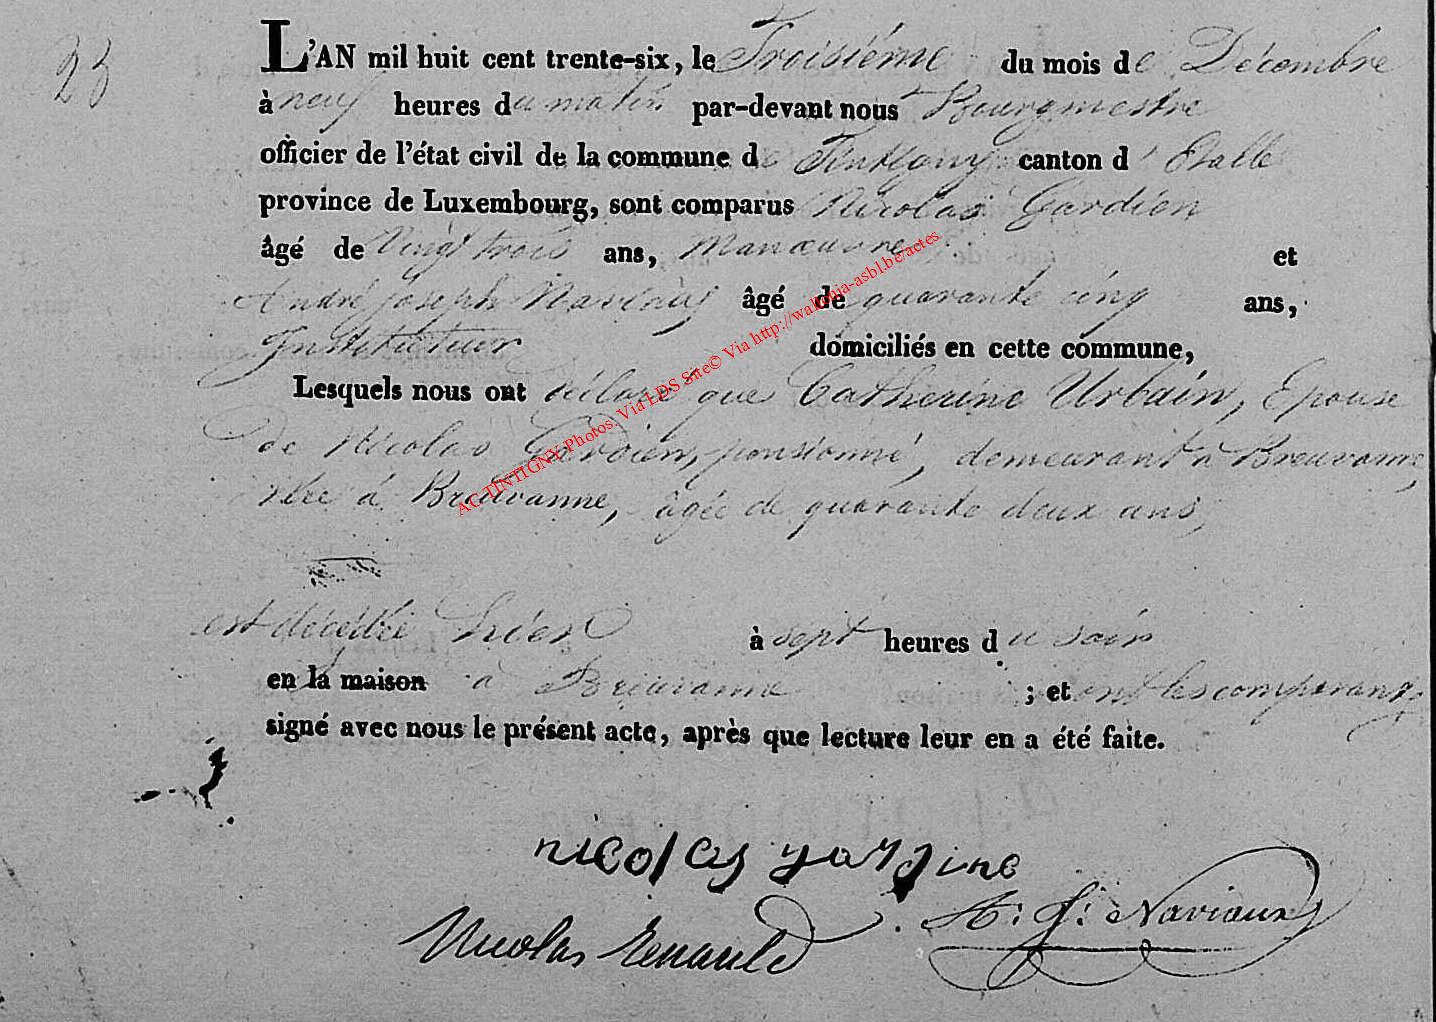 23
L'AN mil huit cent trente-six, le Troisiéme du mois de Décembre
à neuf heures du matin par-devant nous Bourgmestre
officier de l'état civil de la commune de Tintigny canton d'Etalle
province de Luxembourg, sont comparus Nicolas Gardien
âgé de Vingt trois ans, Manœuvre et
André Joseph Naviaux âgé de quarante cinq ans,
Instituteur domiciliés en cette commune,
Lesquels nous ont déclaré que Catherine Urbain, Epouse
de Nicolas Gardien, pensionné, demeurant à Breuvanne,
née à Breuvanne, âgée de quarante deux ans,
est décédée hier à sept heures du soir
en la maison à Breuvanne ; et ont les comparans
signé avec nous le présent acte, après que lecture leur en a été faite.
nicolas gardine
A. J. Naviaux
Nicolas Renauld
AC TINTIGNY Photos. Via LDS Site© Via http://wallonia-asbl.be/actes